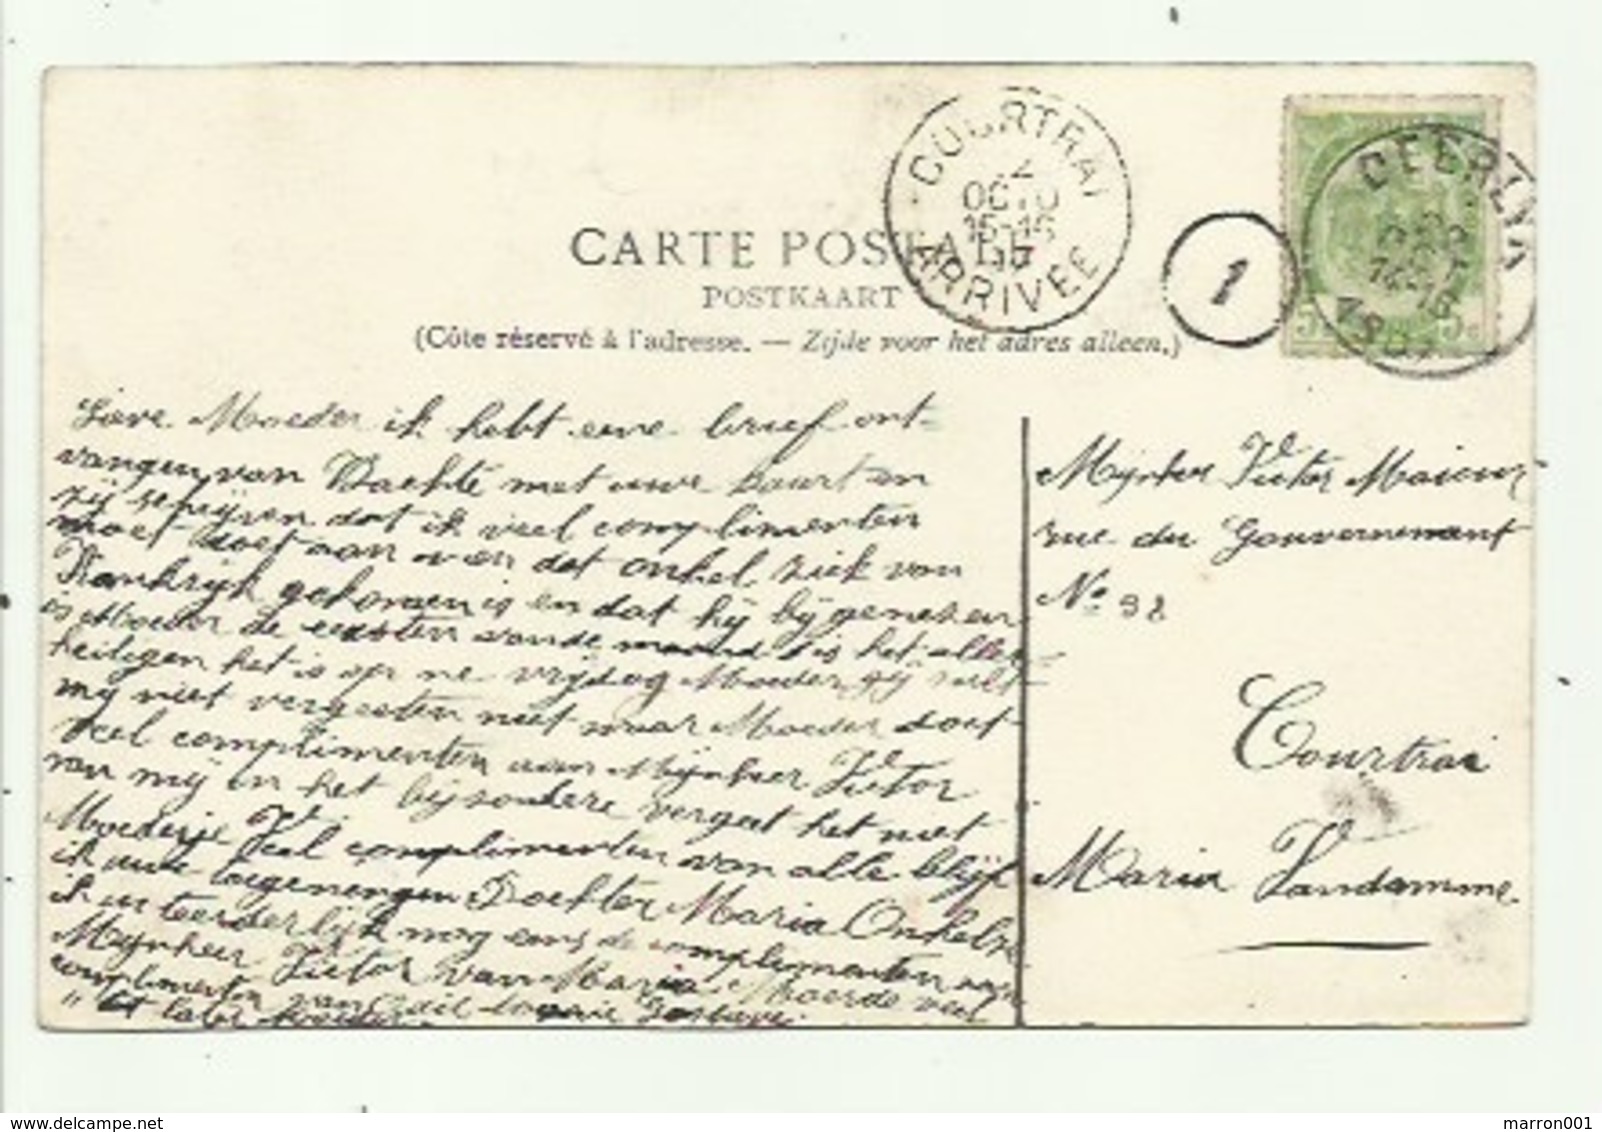 COURTRAI
2
OCTO
15-16
07
ARRIVEE
1
1907
5c 5c
CARTE POSTALE
POSTKAART
(Côte réservé à l'adresse. — Zijde voor het adres alleen.)
Lieve Moeder ik hebt eene brief ont-
vangen van Dachte met uwe kaart en
zij schrijven dat ik veel complimenten
moet doet aan en dat onkel ziek van
Frankrijk gekomen is en dat hij bij genezen
is Moeder de eersten van de maand is het aller-
heiligen het is op ne vrijdag Moeder gij zult
mij niet vergeeten niet waar Moeder doet
veel complimenten aan Mijnheer Victor
van mij in het bijzondere vergeet het niet
Moederje Veel complimenten van alle blijf
ik uwe toegenengen Dochter Maria Onkelse
ik u teerderlijk nog eens de complimenten aan
Mijnheer Victor van Maria Moerde veel
complimenten van
Mijnheer Victor
rue du Gouvernemant
No 38
Courtrai
Maria Vandamme
delcampe.net
marron001